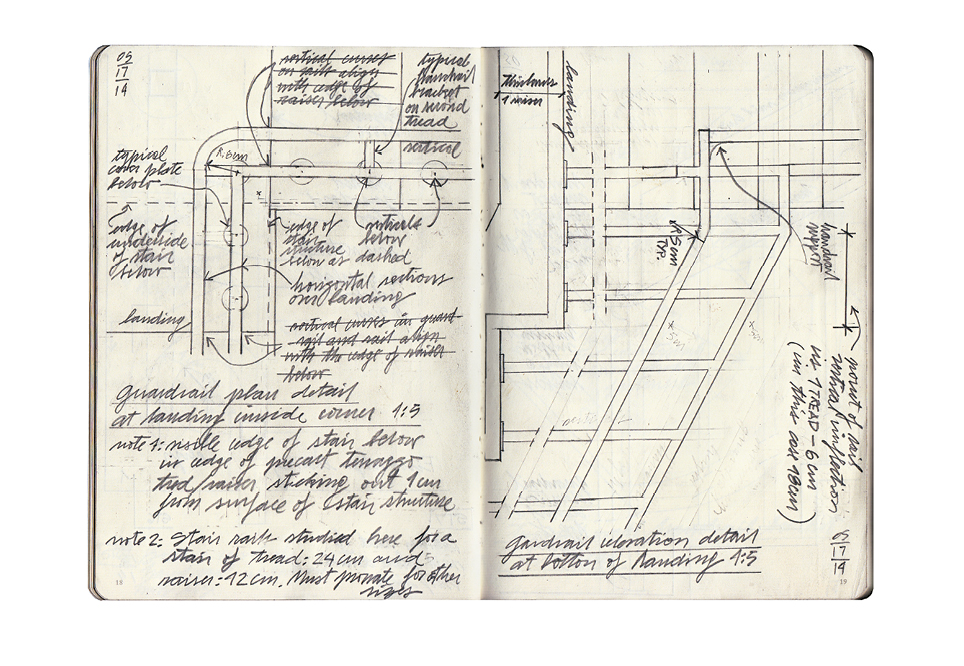 05
17
14
vertical curves
on rails align
with edge of
raiser below
typical
handrail
bracket
on second
tread
vertical
typical
cover plate
below
R.6cm
edge of
underside
of stair
below
edge of
stair
structure
below as dashed
verticals
below
horizontal sections
over landing
landing
vertical curves in guard
rail and rail align
with the edge of raiser
below
Guardrail plan detail
at landing inside corner 1:5
note 1: visible edge of stair below
is edge of precast terrazzo
tred/raiser sticking out 1cm
from surface of stair structure
note 2: Stair rails studied here for a
stair of tread: 24cm and
raiser: 12cm. Must prorate for other
sizes
18
1 riser
landing
R5cm
TYP.
handrail
point of rail
vertical inflection
is 1 TREAD - 6cm
(in this case 18cm)
Gardrail elevation detail
at bottom of landing 1:5
05
17
14
19